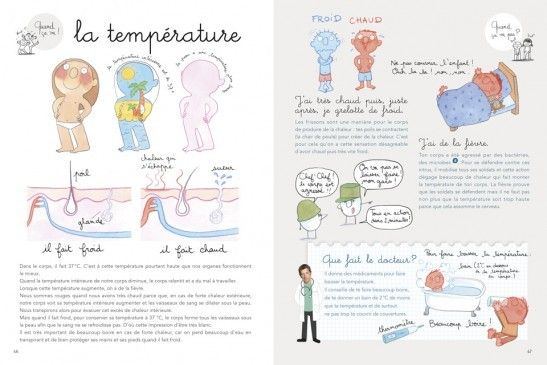 Quand ça va !
la température
la température intérieure est de 37°
poil
glande
il fait froid
chaleur qui s'échappe
sueur
il fait chaud
Dans le corps, il fait 37°C. C'est à cette température pourtant haute que nos organes fonctionnent le mieux.
Quand la température intérieure de notre corps diminue, le corps ralentit et a du mal à travailler
Lorsque cette température augmente, on a de la fièvre.
Nous sommes rouges quand nous avons très chaud parce que, en cas de forte chaleur extérieure,
notre corps voit sa température intérieure augmenter et les vaisseaux de sang se dilater sous la peau.
Nous transpirons alors pour évacuer cet excès de chaleur interne.
Mais quand il fait froid, pour conserver la température à 37 °C, le corps ferme tous les vaisseaux sous
la peau afin que le sang ne se refroidisse pas. D'où cette impression d'être très blanc.
Il est très important de beaucoup boire en cas de forte chaleur, car on perd beaucoup d'eau en
transpirant et de bien protéger ses mains et ses pieds quand il fait froid.
66
Quand ça va pas !
FROID CHAUD
J'ai très chaud puis, juste
après, je grelotte de froid.
Les frissons sont une manière pour le corps
de produire de la chaleur : tes poils se contractent
(la chair de poule) pour créer de la chaleur. C'est
pour cela qu'on a cette sensation désagréable
d'avoir chaud puis très vite froid.
Ne pas couvrir l'enfant !
Ouh la la ! non, non !
J'ai de la fièvre.
Ton corps a été agressé par des bactéries,
des microbes
Pour se défendre contre ces
intrus, il mobilise tous ses soldats et cette action
dégage beaucoup de chaleur qui fait monter
la température de ton corps. La fièvre prouve
que tes soldats se défendent mais il ne faut pas
non plus que la température soit trop haute
parce que cela assomme le cerveau.
Chef ! Chef !
le corps est
agressé !
On va pas se
laisser faire
mon gars !
Tous en action
dans 2 minutes !
Que fait le docteur?
Il donne des médicaments pour faire
baisser la température.
Il conseille de te faire beaucoup boire,
de te donner un bain de 2 °C de moins
que ta température et de surtout
ne pas trop te couvrir ni te découvrir.
Pour faire baisser la température
thermomètre
Beaucoup boire !
67